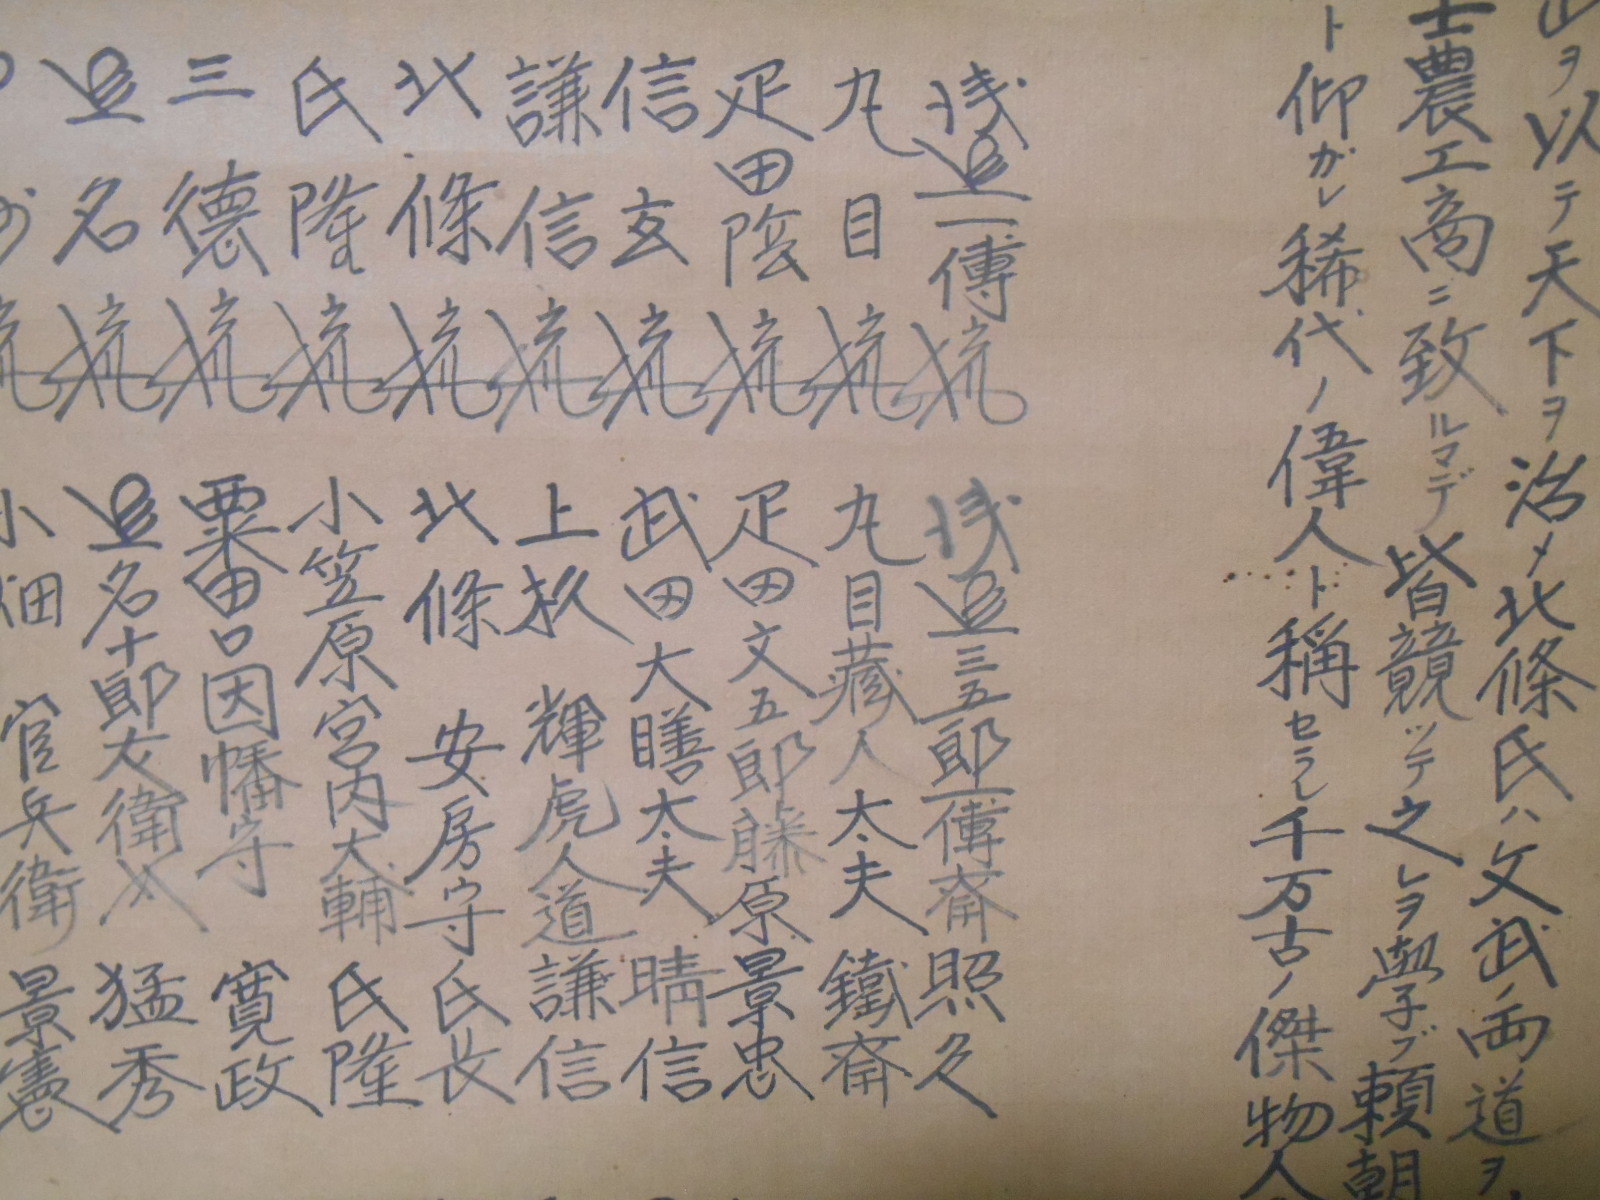 ヲ以テ天下ヲ治メ北條氏ハ文武ノ両道ヲ
士農工商ニ致ルマデ皆競ツテ之レヲ學ブ頼朝
ト仰ガレ稀代ノ偉人ト稱セラレ千万古ノ傑物人
浅邉一傳流 浅邉三五郎一傳斎照久
丸目流 丸目藏人太夫鐵斎
疋田陰流 疋田文五郎藤原景忠
信玄流 武田大膳太夫晴信
謙信流 上杦輝虎入道謙信
北條流 北條安房守氏長
氏隆流 小笠原宮内大輔氏隆
三德流 粟田口因幡守寛政
邉名流 邉名十郎左衛門猛秀
流 小畑官兵衛景憲